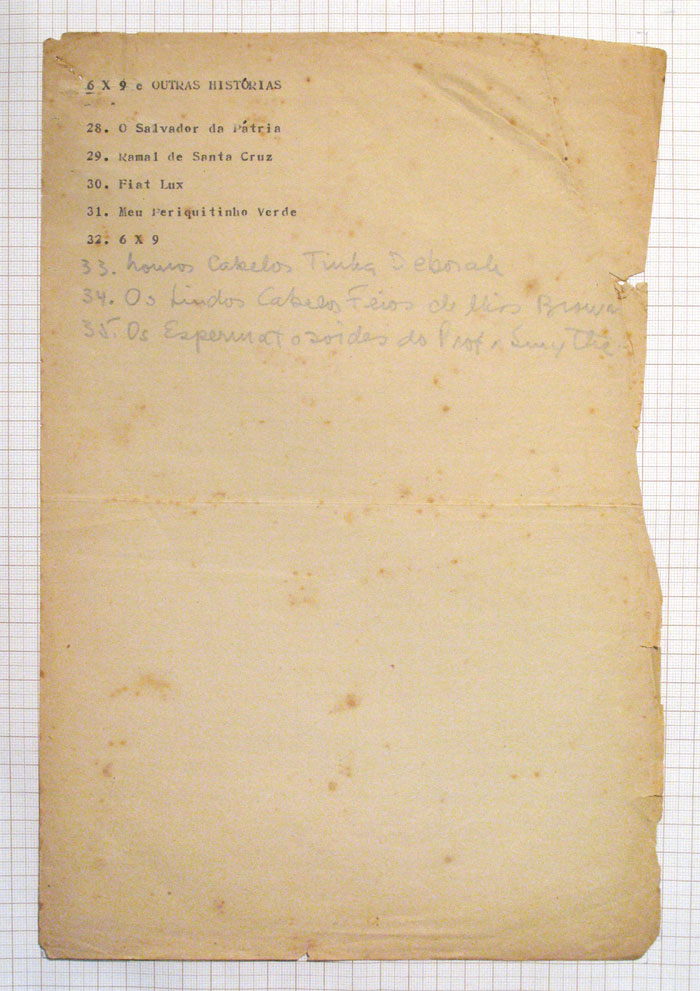 6 X 9 e OUTRAS HISTÓRIAS
28. O Salvador da Pátria
29. Ramal de Santa Cruz
30. Fiat Lux
31. Meu Periquitinho Verde
32. 6 X 9
33. Louros Cabelos Tinha Deborah
34. Os Lindos Cabelos Feios de Miss Brown
35. Os Espermatozoides do Prof. Smythe